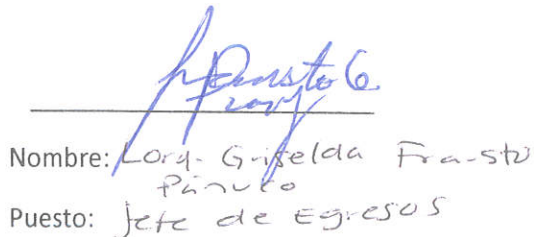 Nombre: Lora. Griselda Frausto
Pánuco
Puesto: Jefe de Egresos